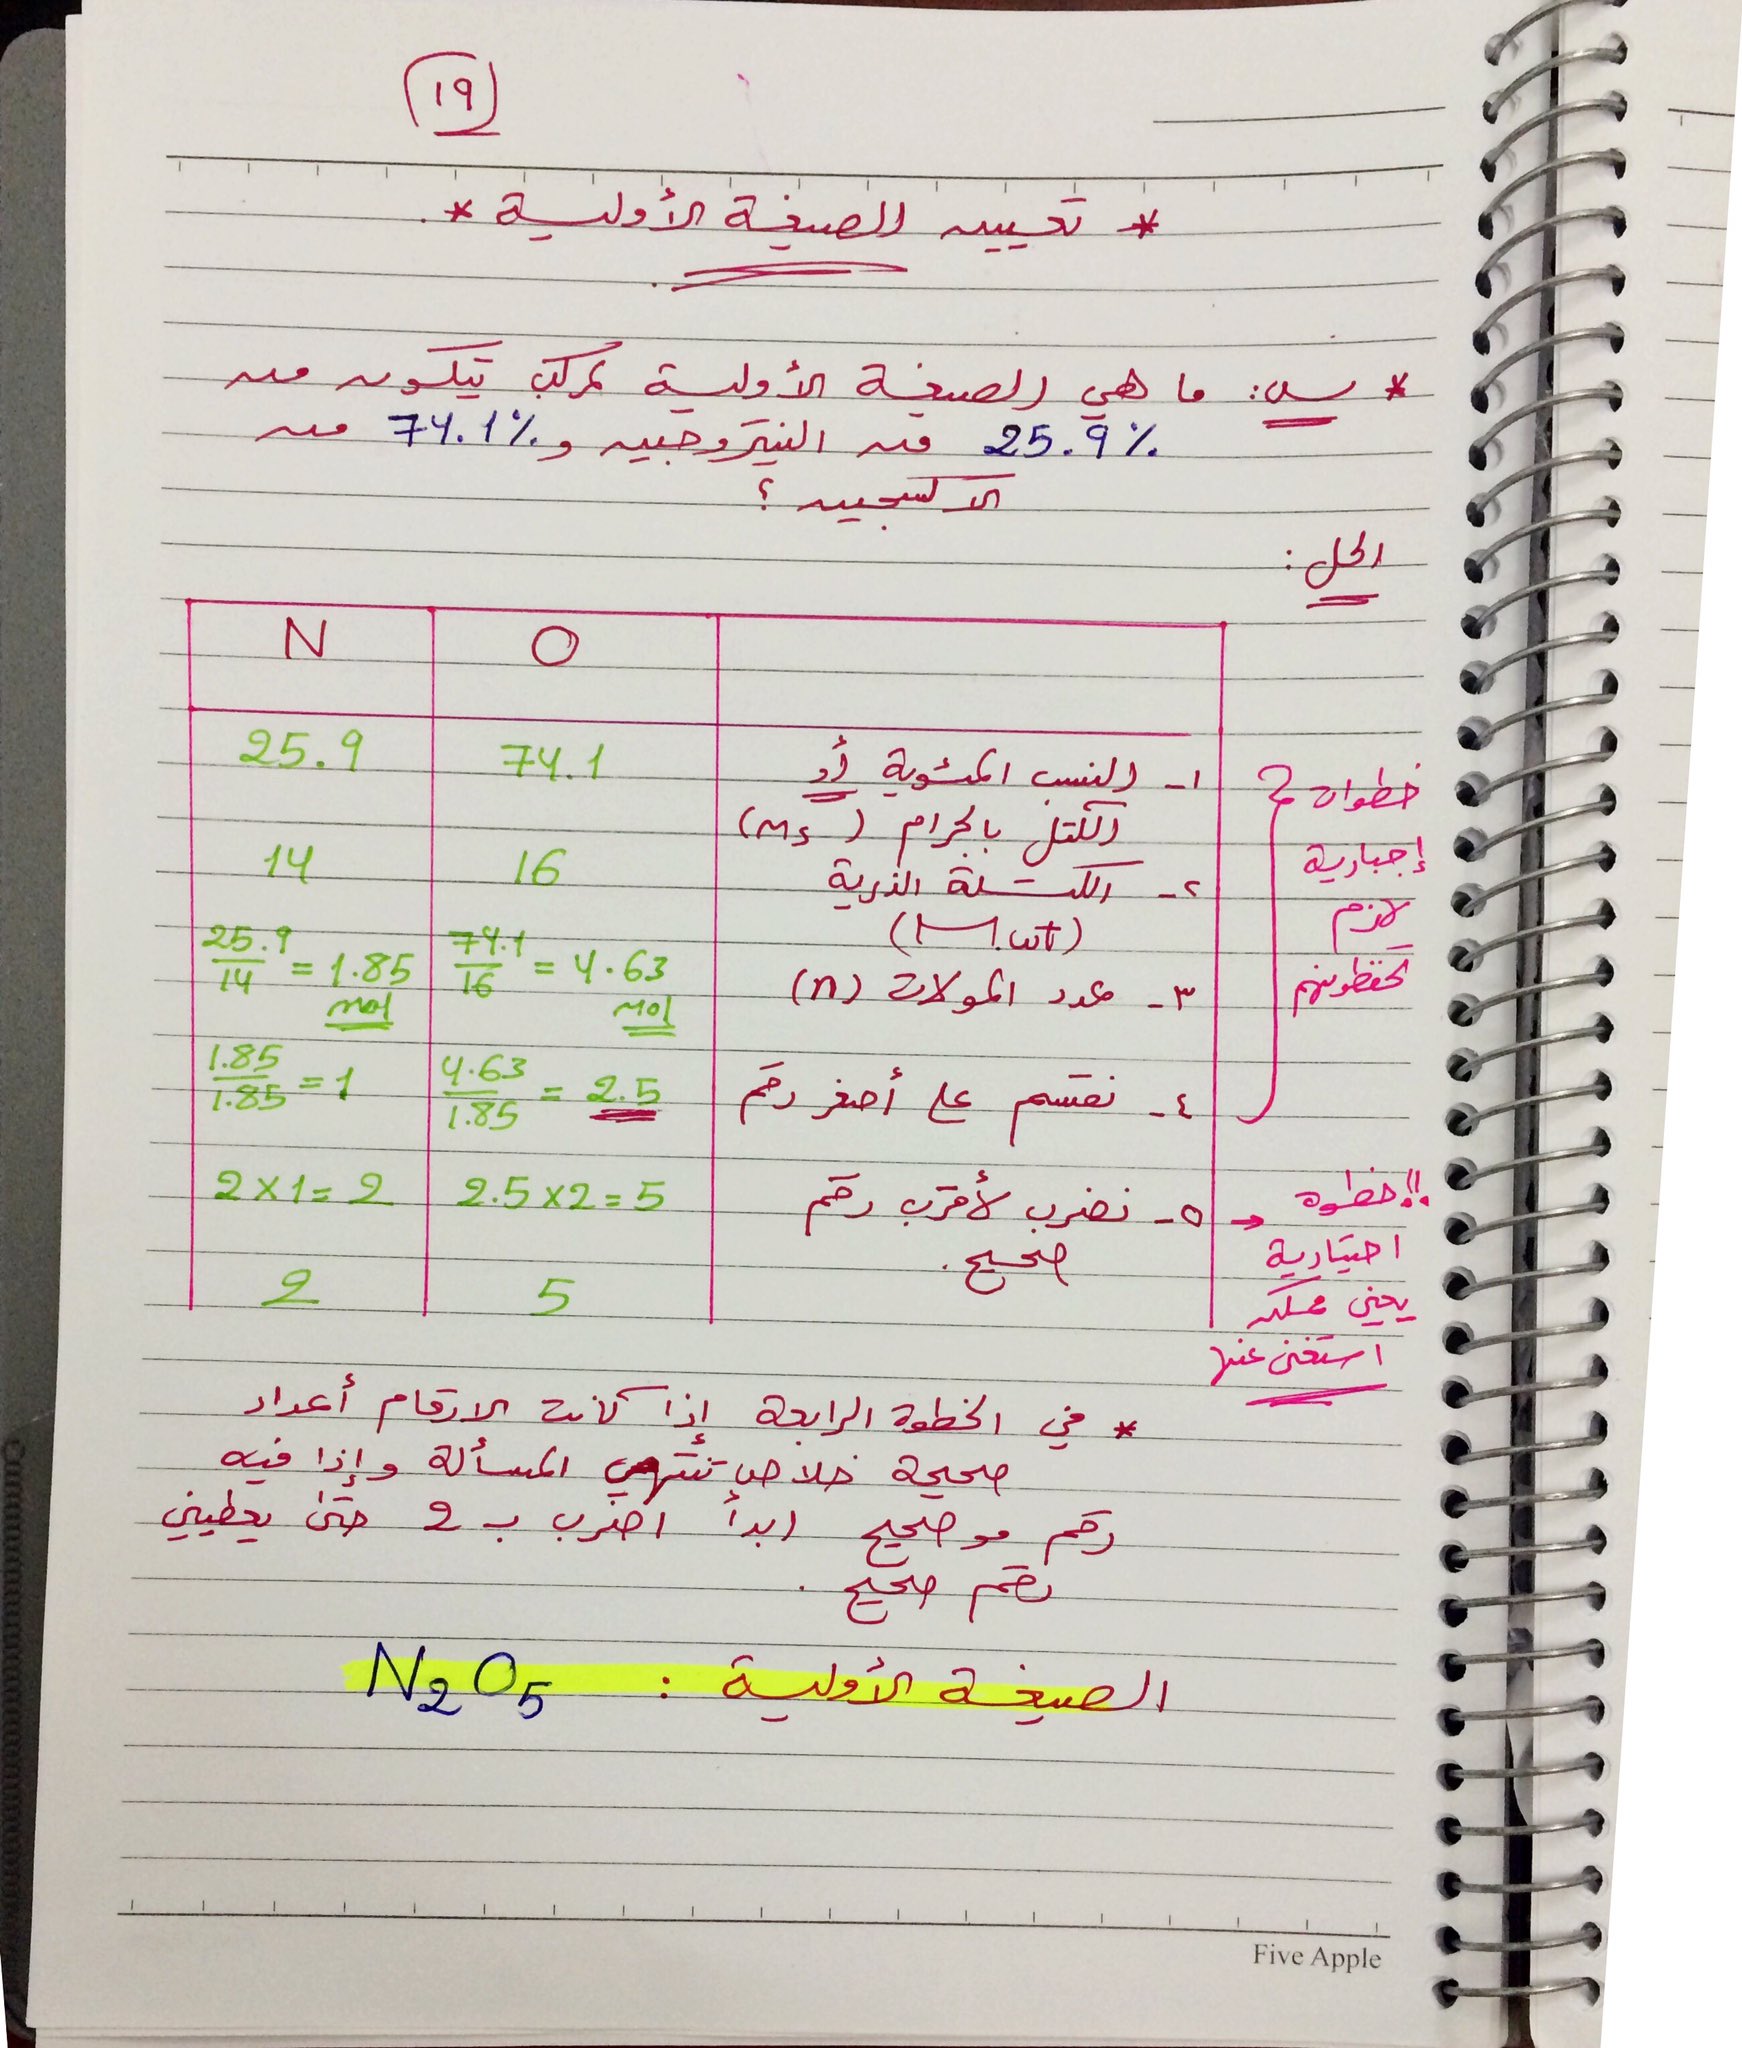 ١٩
* تعيين الصيغة الأولية *
* س: ما هي الصيغة الأولية لمركب يتكون من
25.9% من النيتروجين و 74.1% من
الاكسجين ؟
الحل :
N O
25.9 74.1 ١- النسب المئوية أو
الكتل بالجرام (ms)
14 16 ٢- الكتلة الذرية
(M.wt)
25.9/14 = 1.85 mol 74.1/16 = 4.63 mol ٣- عدد المولات (n)
1.85/1.85 = 1 4.63/1.85 = 2.5 ٤- نقسم على أصغر رقم
2 × 1 = 2 2.5 × 2 = 5 ٥- نضرب لأقرب رقم
صحيح .
2 5
خطوات
إجبارية
لازم
تحفظونهم
!! خطوة
اختيارية
يعني ممكن
استغنى عنها
* في الخطوة الرابعة إذا كانت الارقام أعداد
صحيحة خلاص تنتهي المسألة وإذا فيه
رقم مو صحيح ابدأ اضرب بـ 2 حتى يعطيني
رقم صحيح .
الصيغة الأولية : N₂O₅
Five Apple